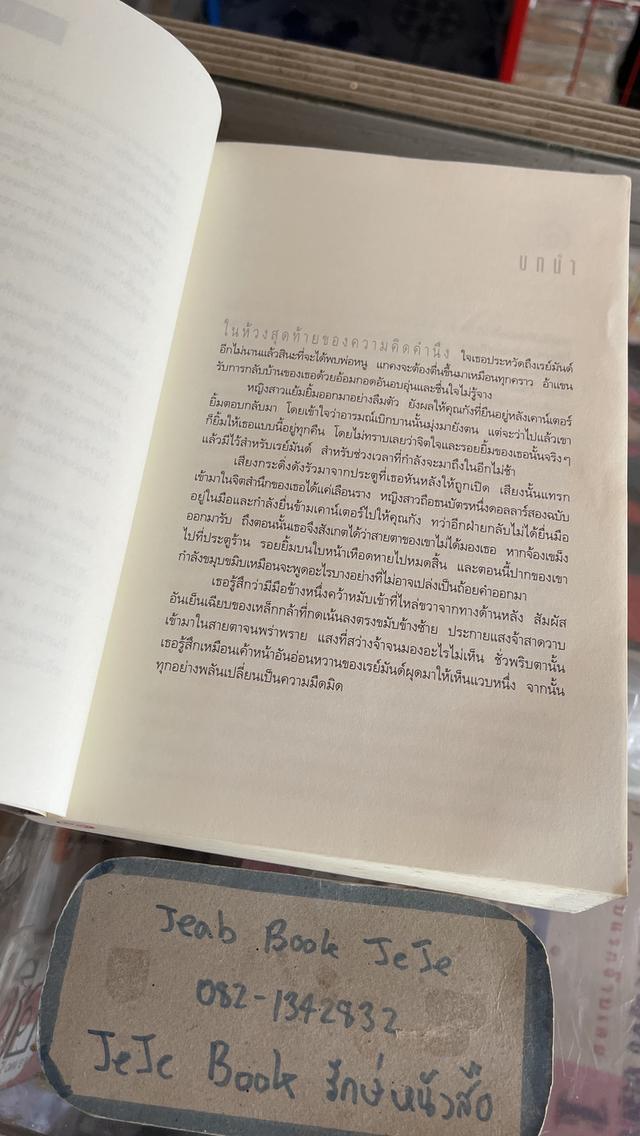 บทนำ
ในห้วงสุดท้ายของความคิดคำนึง ใจเธอประหวัดถึงเรย์มันด์
อีกไม่นานแล้วสินะที่จะได้พบพ่อหนู แกคงจะต้องตื่นขึ้นมาเหมือนทุกคราว อ้าแขน
รับการกลับบ้านของเธอด้วยอ้อมกอดอันอบอุ่นและชื่นใจไม่รู้จาง
หญิงสาวแย้มยิ้มออกมาอย่างลืมตัว ยังผลให้คุณกังที่ยืนอยู่หลังเคาน์เตอร์
ยิ้มตอบกลับมา โดยเข้าใจว่าอารมณ์เบิกบานนั้นมุ่งมายังตน แต่จะว่าไปแล้วเขา
ก็ยิ้มให้เธอแบบนี้อยู่ทุกคืน โดยไม่ทราบเลยว่าจิตใจและรอยยิ้มของเธอนั้นจริงๆ
แล้วมีไว้สำหรับเรย์มันด์ สำหรับช่วงเวลาที่กำลังจะมาถึงในอีกไม่ช้า
เสียงกระดิ่งดังรัวมาจากประตูที่เธอหันหลังให้ถูกเปิด เสียงนั้นแทรก
เข้ามาในจิตสำนึกของเธอได้แค่เลือนราง หญิงสาวถือธนบัตรหนึ่งดอลลาร์สองฉบับ
อยู่ในมือและกำลังยื่นข้ามเคาน์เตอร์ไปให้คุณกัง ทว่าอีกฝ่ายกลับไม่ได้ยื่นมือ
ออกมารับ ถึงตอนนั้นเธอจึงสังเกตได้ว่าสายตาของเขาไม่ได้มองเธอ หากจ้องเขม็ง
ไปที่ประตูร้าน รอยยิ้มบนใบหน้าเหือดหายไปหมดสิ้น และตอนนี้ปากของเขา
กำลังขมุบขมิบเหมือนจะพูดอะไรบางอย่างที่ไม่อาจเปล่งเป็นถ้อยคำออกมา
เธอรู้สึกว่ามีมือข้างหนึ่งคว้าหมับเข้าที่ไหล่ขวาจากทางด้านหลัง สัมผัส
อันเย็นเฉียบของเหล็กกล้าที่กดเน้นลงตรงขมับข้างซ้าย ประกายแสงจ้าสาดวาบ
เข้ามาในสายตาจนพร่าพราย แสงที่สว่างจ้าจนมองอะไรไม่เห็น ชั่วพริบตานั้น
เธอรู้สึกเหมือนเค้าหน้าอันอ่อนหวานของเรย์มันด์ผุดมาให้เห็นแวบหนึ่ง จากนั้น
ทุกอย่างพลันเปลี่ยนเป็นความมืดมิด
Jeab Book JeJe
082-1342832
JeJe Book รักษ์หนังสือ